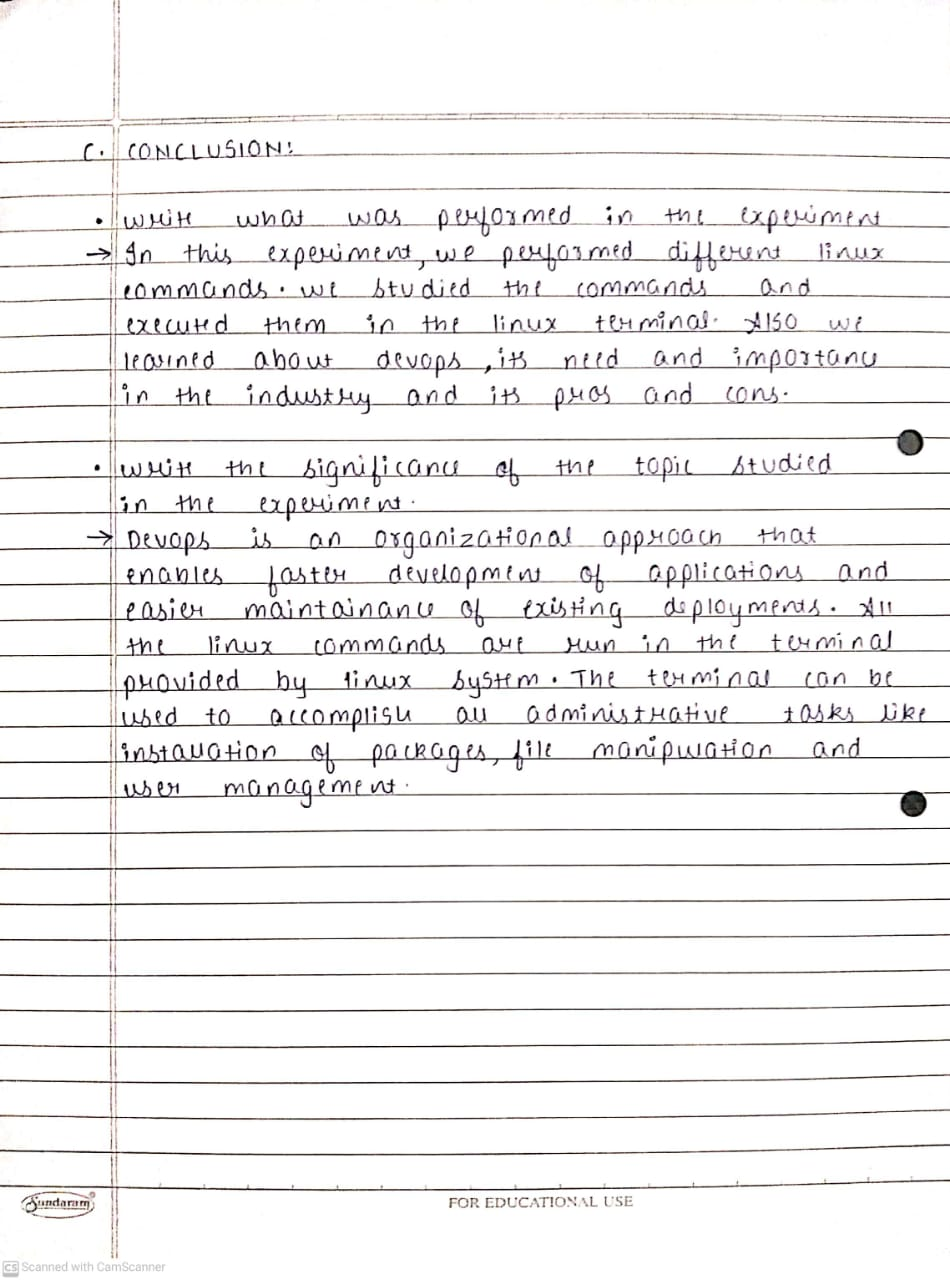 C. CONCLUSION:
• write what was performed in the experiment
→ In this experiment, we performed different linux
commands. we studied the commands and
executed them in the linux terminal. Also we
learned about devops, its need and importance
in the industry and its pros and cons.
• write the significance of the topic studied
in the experiment.
→ Devops is an organizational approach that
enables faster development of applications and
easier maintainance of existing deployments. All
the linux commands are run in the terminal
provided by linux system. The terminal can be
used to accomplish all administrative tasks like
installation of packages, file manipulation and
user management.
Sundaram
FOR EDUCATIONAL USE
CS Scanned with CamScanner